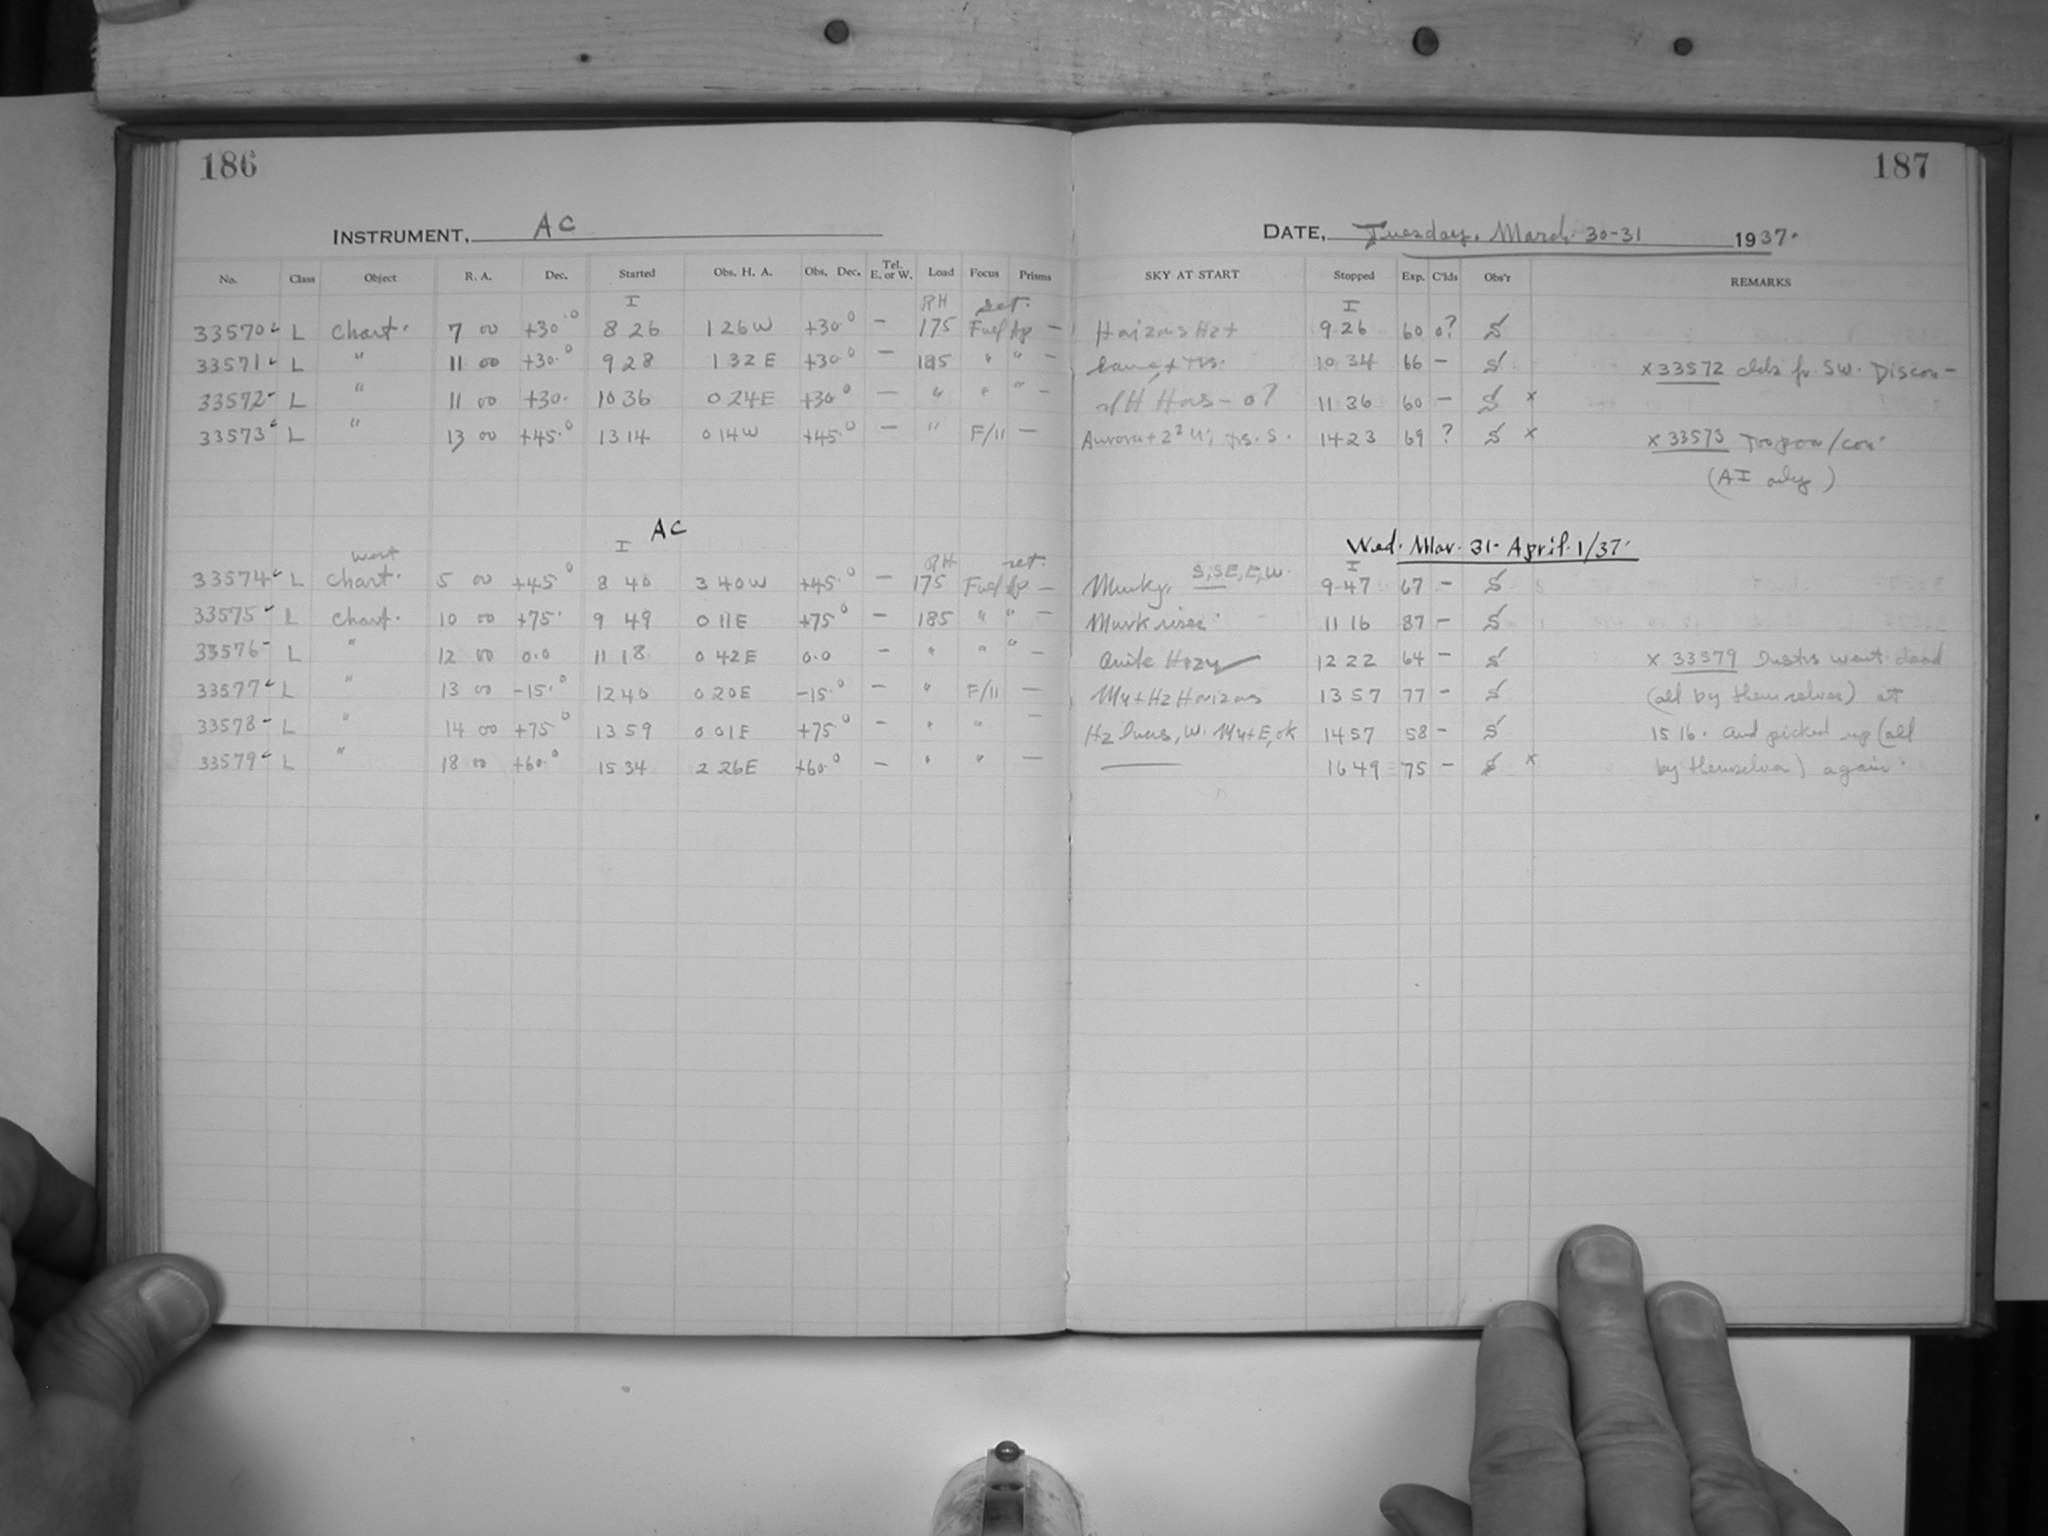 186
INSTRUMENT, AC
No. Class Object R. A. Dec. Started Obs. H. A. Obs. Dec. Tel. E. or W. Load Focus Prisms
I RH ret.
33570 L Chart. 7 00 +30.°0 8 26 1 26 W +30.° – 175 Full Ap –
33571 L " 11 00 +30.° 9 28 1 32 E +30° – 185 " " –
33572 L " 11 00 +30. 10 36 0 24 E +30° – " " " –
33573 L " 13 00 +45.° 13 14 0 14 W +45.° – " F/11 –
AC
West I RH ret.
33574 L Chart. 5 00 +45° 8 40 3 40 W +45.° – 175 Full Ap –
33575 L Chart. 10 00 +75. 9 49 0 11 E +75° – 185 " " –
33576 L " 12 00 0.0 11 18 0 42 E 0.0 – " " " –
33577 L " 13 00 –15.° 12 40 0 20 E –15.° – " F/11 –
33578 L " 14 00 +75° 13 59 0 01 E +75.° – " " –
33579 L " 18 00 +60.° 15 34 2 26 E +60.° – " " –
187
DATE, Tuesday, March 30-31 1937.
SKY AT START Stopped Exp. C'lds Obs'r REMARKS
I
Horizons Hz+ 9 26 60 0? S
10 34 66 – S x 33572 clds fr SW. Discon–
11 36 60 – S x
Aurora + 14 23 69 ? S x x 33573
(AI only)
Wed. Mar. 31- April 1/37.
I
Murky, S, SE, E, W. 9 47 67 – S
Murk 11 16 87 – S
Quite Hazy 12 22 64 – S x 33579 went dead
My+Hz Horizons 13 57 77 – S (all by themselves) at
Hz W. My+E, ok 14 57 58 – S 15 16. and picked up (all
16 49 75 – S x by themselves) again.